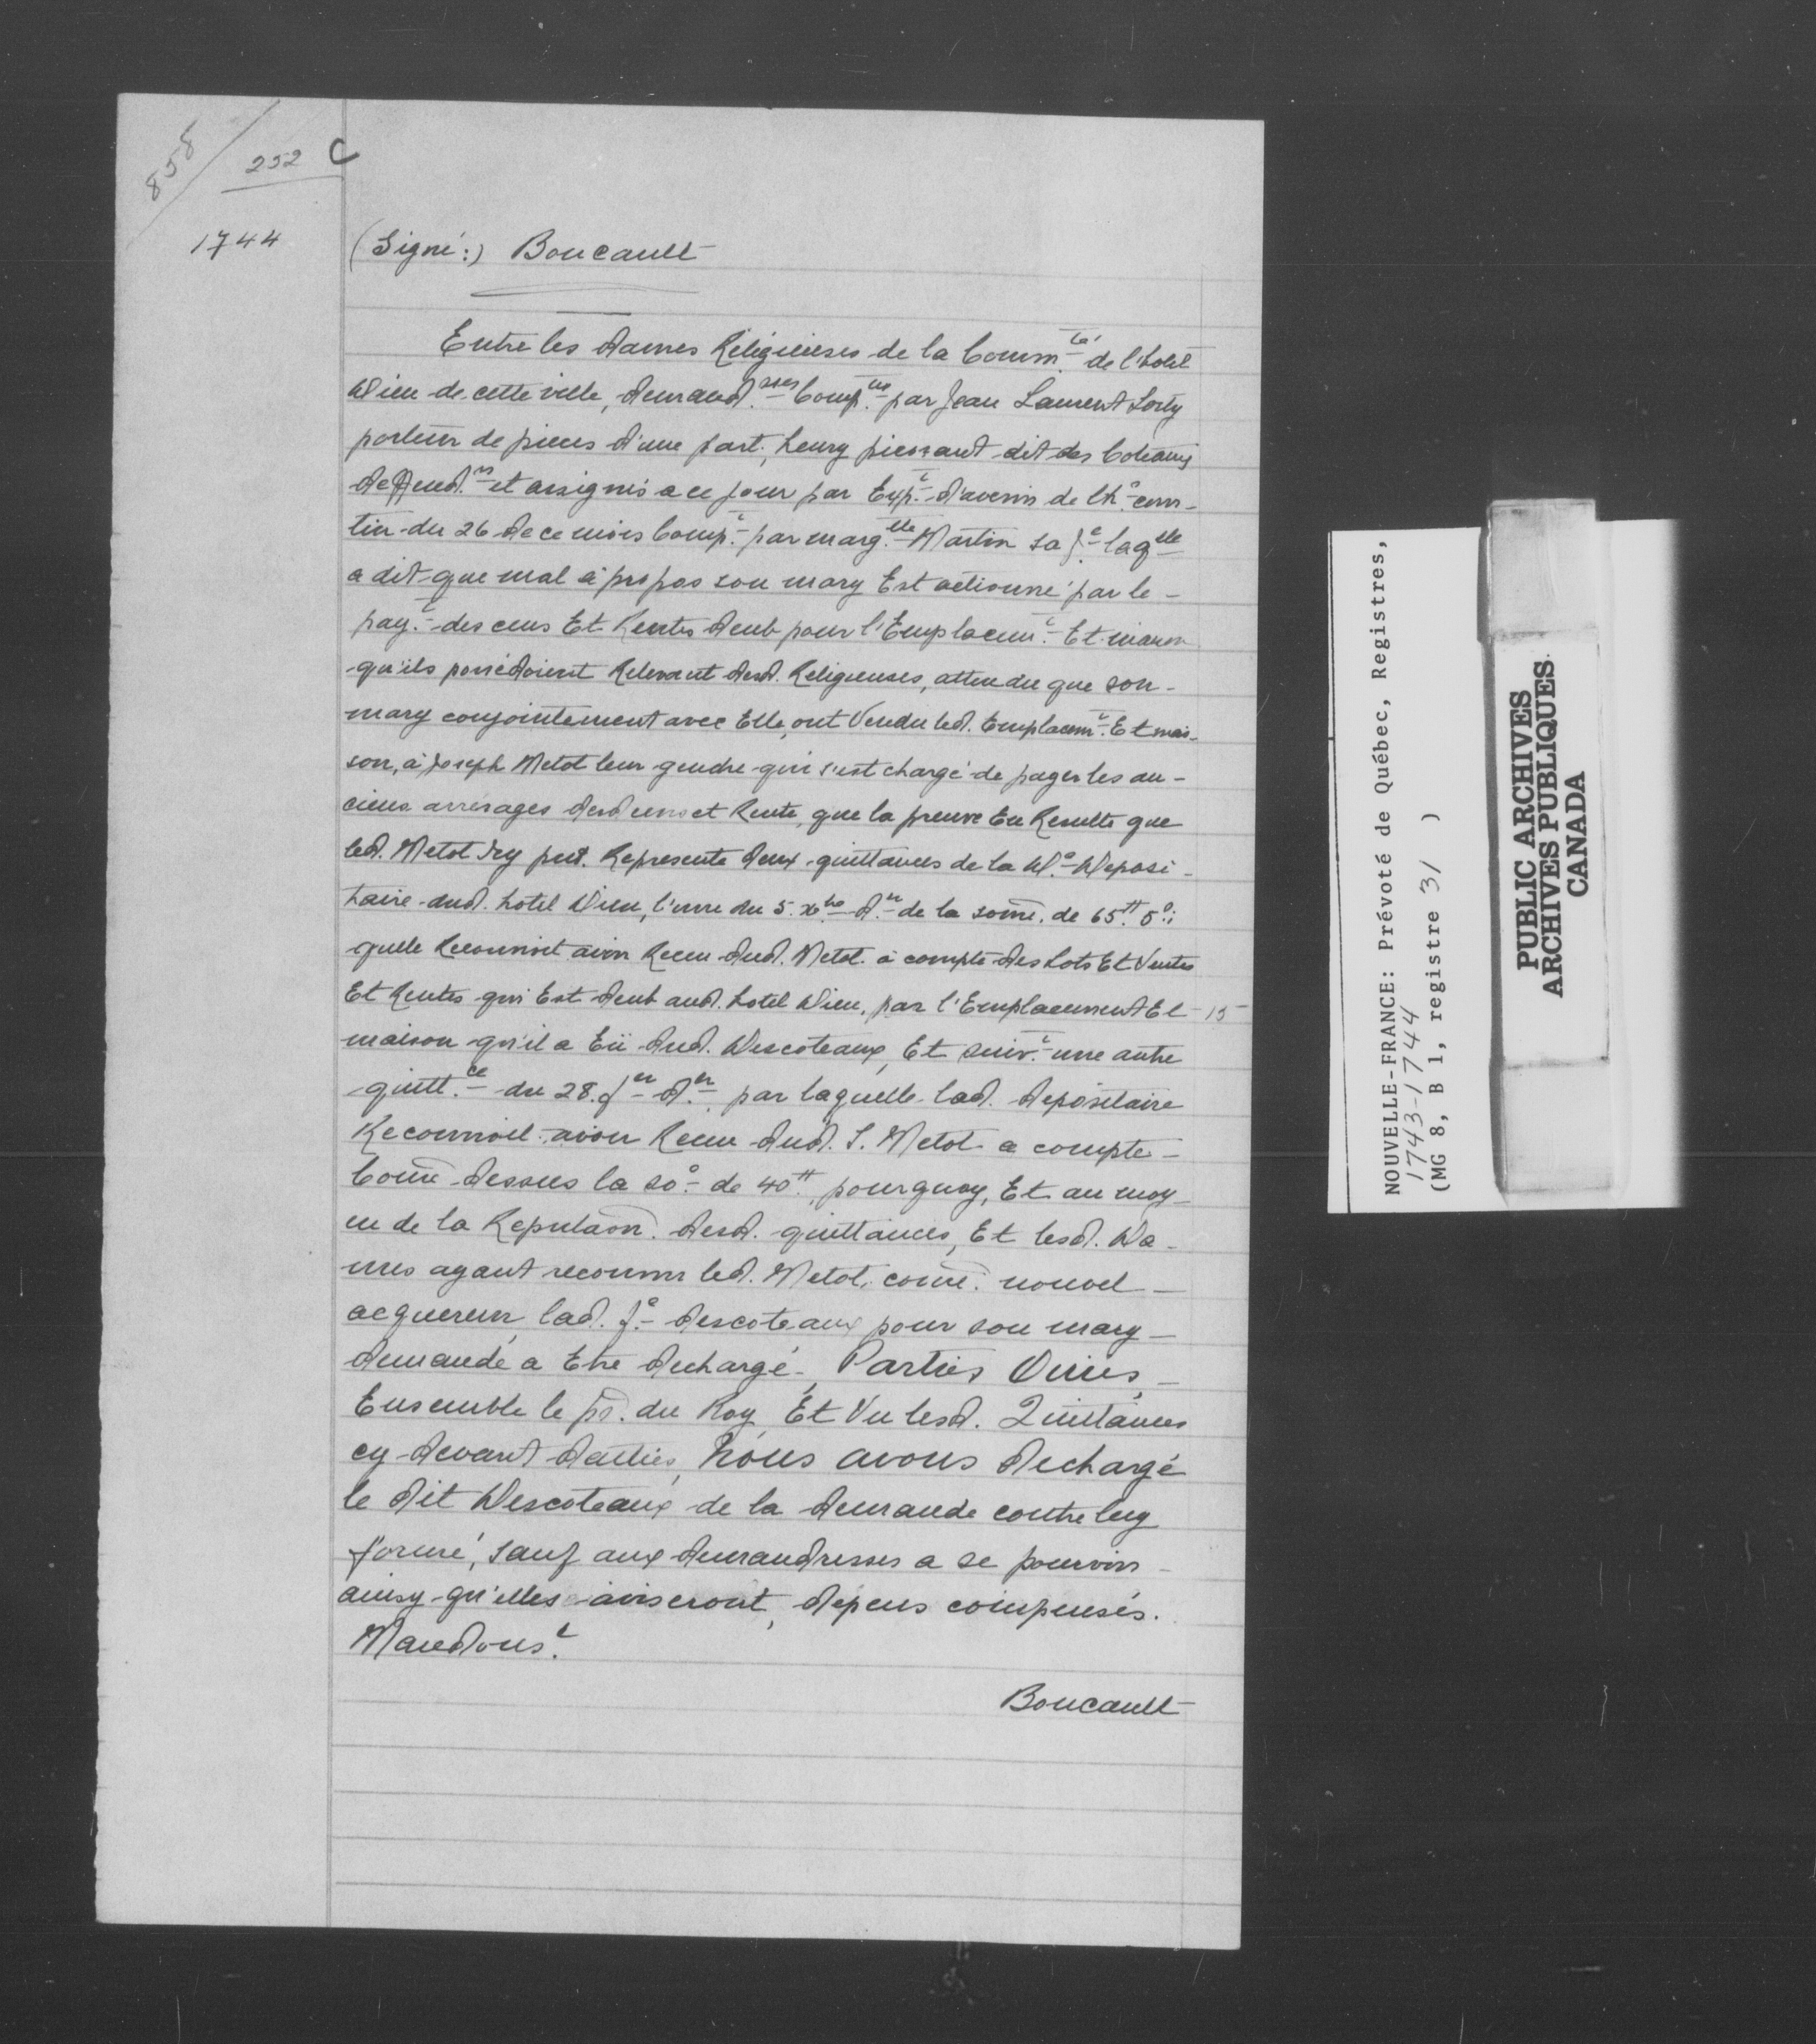 858
252 C
1744
(Signé:) Boucault
Entre les dames Religieuses de la Comm.té de l'hotel
Dieu de cette ville, demand.sses Comp.tes par Jean Laurent Lorty
porteur de pieces d'une part, henry dit des Coteaux
deffend.r et assigné a ce jour par Exp.t d'avenir de lh.e cons-
tin du 26 de ce mois Comp.t par marg.tte Martin sa f.e laqlle
a dit que mal à propos son mary Est actionné par le -
pay.t des cens Et Rentes deub pour l'Emplacem.t Et maison
qu'ils possedoient Relevant desd. Religieuses, attendu que son -
mary conjointement avec Elle, ont Vendu led. Emplacem.t Et mai-
son, à Joseph Metot leur gendre qui s'est chargé de payer les an-
ciens arrerages desd cens et Rente, que la preuve En Resulte que
led. Metot Icy pnt. Represente deux quittances de la D.e Deposi-
taire dud. hotel Dieu, l'une du 5. xbre d.er de la some. de 65tt 5s:
quelle Reconnoit avoir Receu dud. Metot à compte des Lots Et Ventes
Et Rentes qui Est deub aud. hotel Dieu, par l'Emplacement Et - 15
maison qu'il a Eü dud. Descoteaux, Et suiv.t une autre
quitt.ce du 28. d.er, par laquelle lad. depositaire
Reconnoit avoir Receu dud. S. Metot a compte -
Come dessus la so.e de 40tt, pourquoy, Et au moy-
en de la Repntaon. desd. quittances, Et lesd. Da-
mes ayant reconnu led. Metot, come. nouvel -
acquereur, lad. f.e descoteaux pour son mary -
demandé a Etre dechargé, Parties Ouies, -
Ensemble le pr. du Roy Et Vu lesd. Quittances
cy devant dattées, nous avons dechargé
le dit Descoteaux de la demande contre luy
formé, sauf aux demandresses a se pourvoir -
ainsy qu'elles aviseront, dépens compensés.
Mandons.t
Boucault
NOUVELLE-FRANCE: Prévoté de Québec, Registres,
1743-1744
(MG 8, B 1, registre 31 )
PUBLIC ARCHIVES
ARCHIVES PUBLIQUES
CANADA